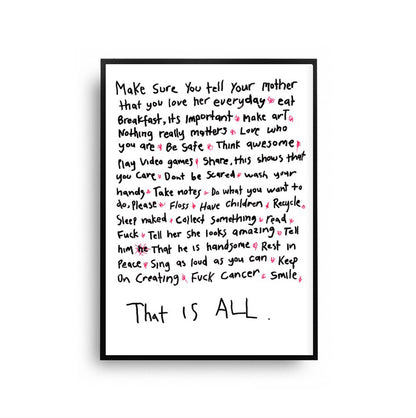 Make Sure You tell Your mother
that you love her everyday * eat
Breakfast, its Important * make art *
Nothing really matters * Love who
you are * Be Safe * Think awesome *
Play Video games * Share, this shows that
you Care * Dont be Scared * wash your
hands * Take notes * Do what you want to
do, Please * Floss * Have Children * Recycle *
Sleep naked * Collect Something * read *
Fuck * Tell her She looks amazing * Tell
him he That he is handsome * Rest in
Peace * Sing as loud as you can * Keep
On Creating * Fuck Cancer * Smile *
That IS ALL.